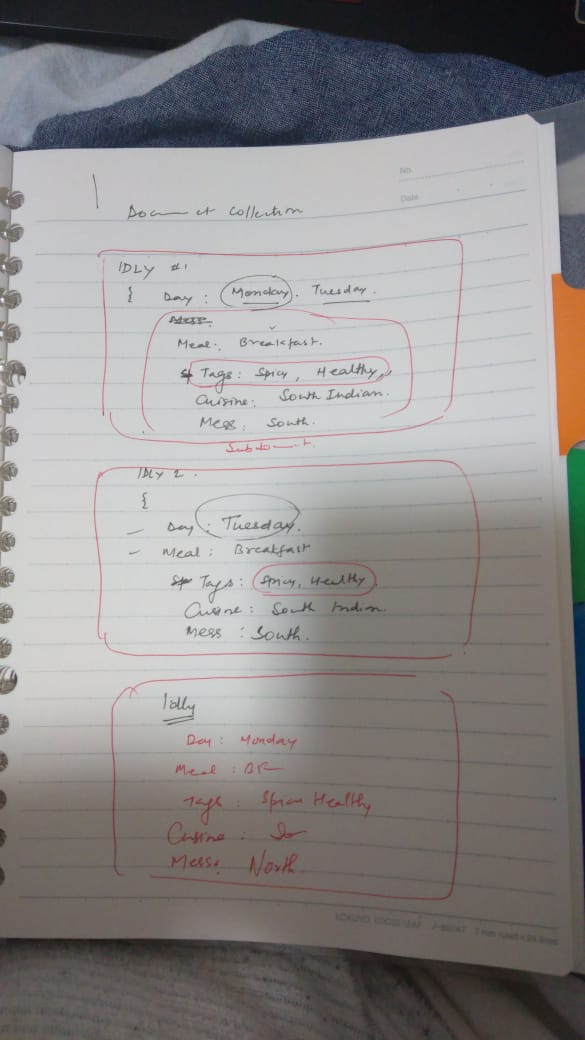 No.
Date
Document Collection
IDLY #1
{ Day : Monday. Tuesday.
Mess:
Meal: Breakfast.
Tags: Spicy, Healthy,
Cuisine: South Indian.
Mess: South.
IDLY 2.
{
- Day : Tuesday.
- Meal : Breakfast
Tags: Spicy, Healthy
Cuisine : South Indian.
Mess : South.
Idlly
Day : Monday
Meal : BF
Tags : Healthy
Cuisine :
Mess: North